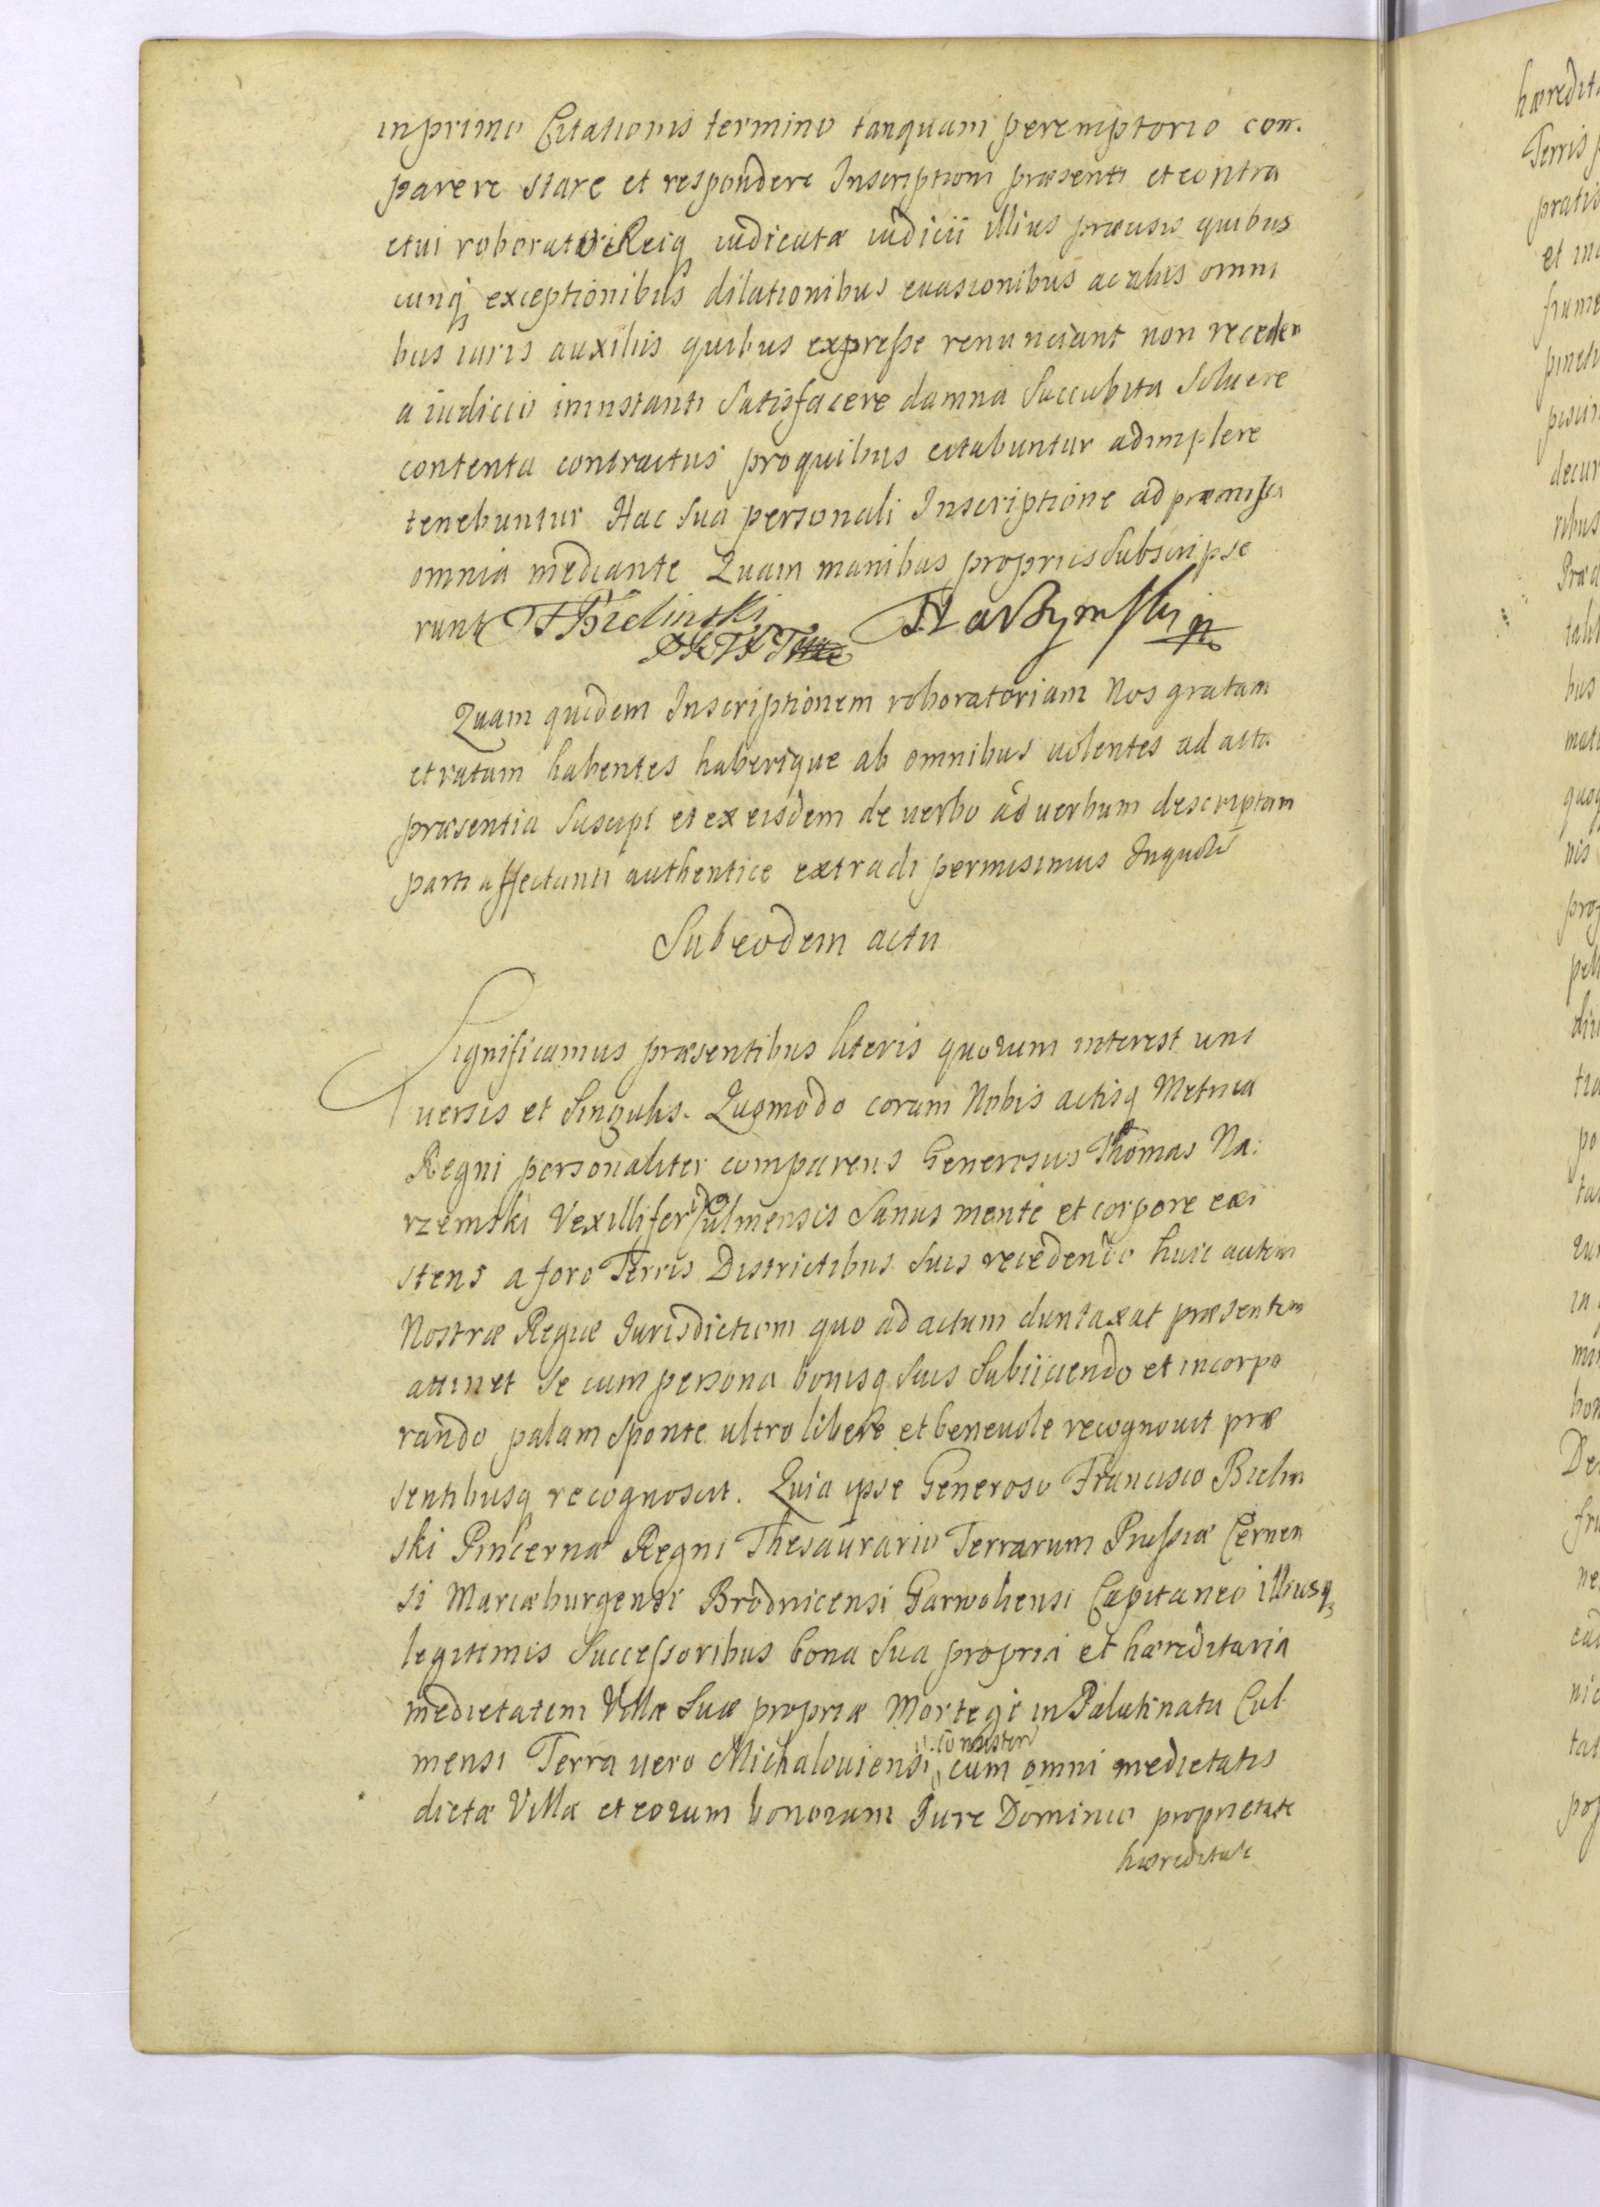 in primo Citationis termino tanquam peremptorio com.
parere stare et respondere Inscriptioni præsenti et contra
ctui roboratori Reiq iudicatæ iudicii illius præcisis quibus
cunq exceptionibus dilationibus evasionibus ac aliis omni
bus iuris auxiliis quibus expresse renunciant non receden
a iudicio in instanti Satisfacere damna Succubita Solvere
contenta contractus pro quibus citabuntur adimplere
tenebuntur Hac Sua personali Inscriptione ad præmissa
omnia mediante Quam manibus propriis Subscripse
runt FBielinski
Quam quidem Inscriptionem roboratoriam Nos gratam
et ratam habentes haberique ab omnibus uolentes ad acta
præsentia Suscipi et ex eisdem de uerbo ad uerbum descriptam
parti affectanti authentice extradi permisimus Inquor
Sub eodem actu
Significamus præsentibus literis quorum interest uni
uersis et Singulis. Quomodo coram Nobis actisq Metrica
Regni personaliter comparens Generosus Thomas Na:
rzemski Vexillifer Culmensis Sanus mente et corpore exi
stens a foro Terris Districtibus Suis recedendo huic autem
Nostræ Regiæ Iurisdictioni quo ad actum duntaxat præsentem
attinet Se cum persona bonisq Suis Subiiciendo et incorpo
rando palam Sponte ultro libere et beneuole recognouit præ
sentibusq recognoscit. Quia ipse Generoso Francisco Bielin
ski Pincernæ Regni Thesaurario Terrarum Prussiæ Cernen
si Mariæburgensi Brodnicensi Garwoliensi Capitaneo illiusq
legitimis Successoribus bona Sua propria et hæreditaria
medietatem Villæ Suæ propriæ Mortegi in Palatinatu Cul
mensi Terra vero Michalouiensi consisten cum omni medietatis
dictæ Villæ et eorum bonorum Iure Dominio proprietate
hæreditate